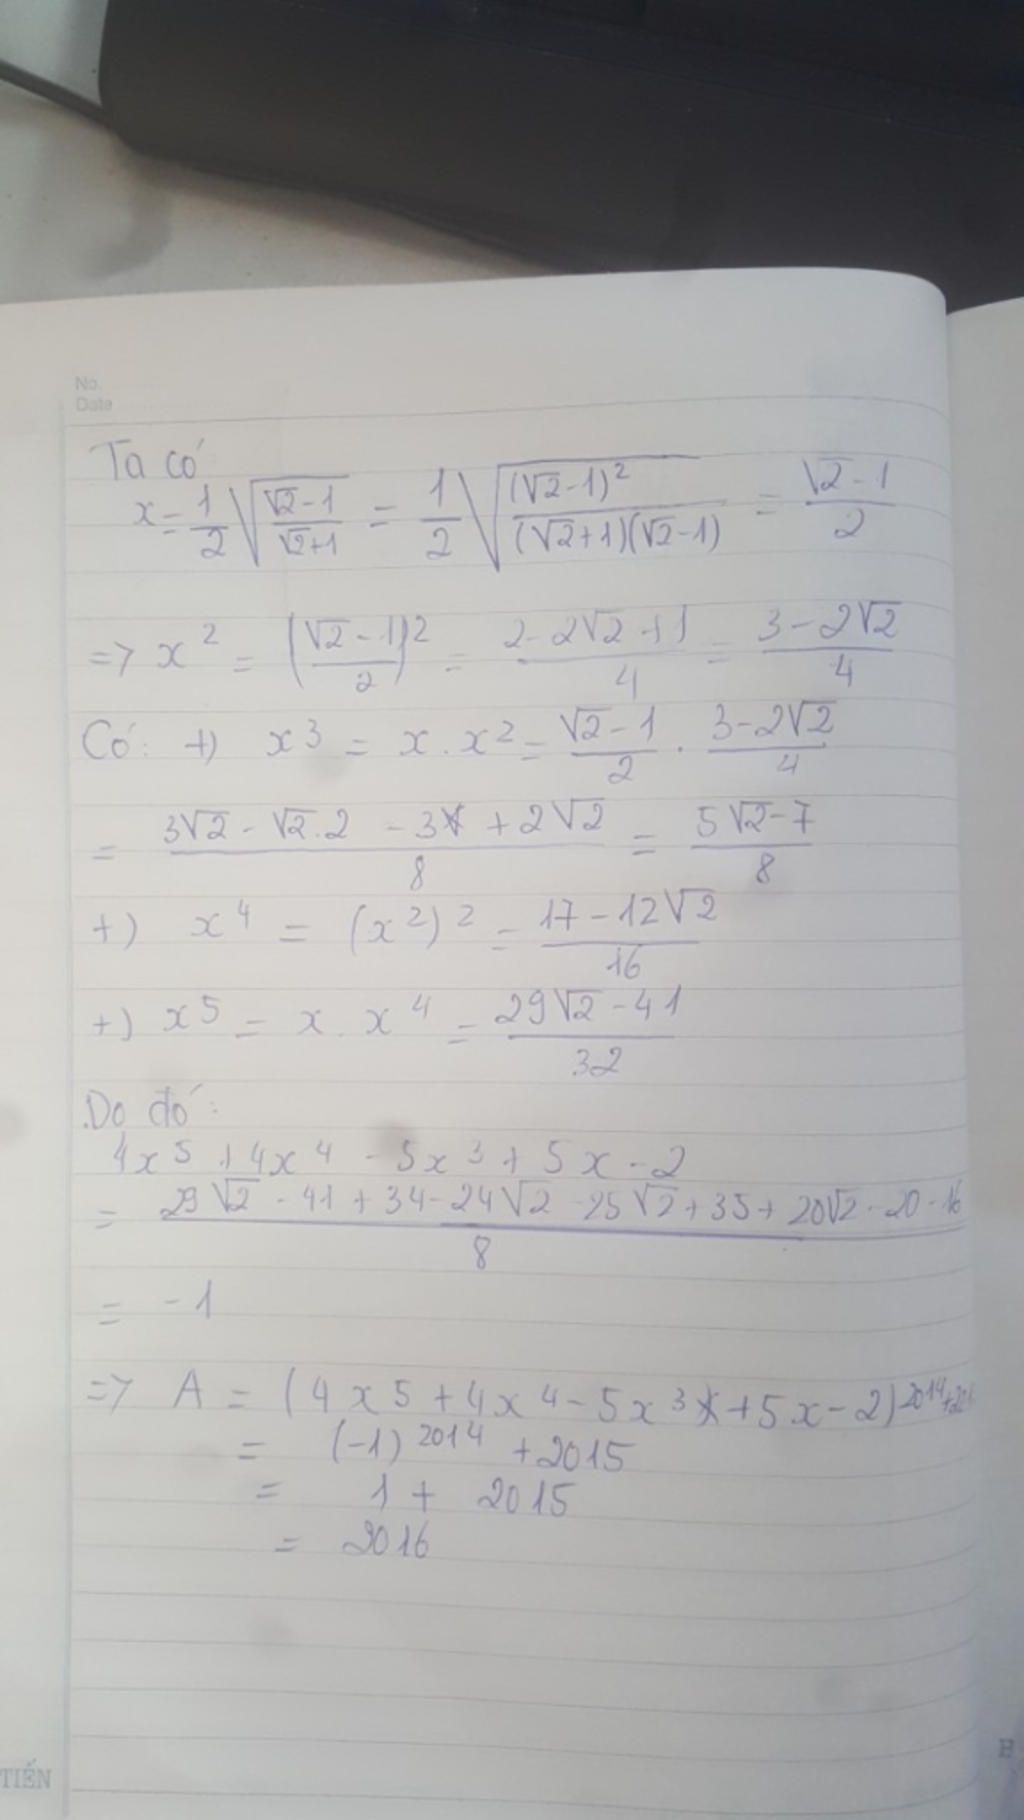 No.
Date
Ta có
x = 1/2 √((√2-1)/(√2+1)) = 1/2 √((√2-1)²/((√2+1)(√2-1))) = (√2-1)/2
=> x² = ((√2-1)/2)² = (2-2√2+1)/4 = (3-2√2)/4
Có: +) x³ = x . x² = (√2-1)/2 . (3-2√2)/4
= (3√2 - √2.2 - 3 + 2√2)/8 = (5√2-7)/8
+) x⁴ = (x²)² = (17-12√2)/16
+) x⁵ = x . x⁴ = (29√2-41)/32
Do đó:
4x⁵ + 4x⁴ - 5x³ + 5x - 2
= (29√2 - 41 + 34 - 24√2 - 25√2 + 35 + 20√2 - 20 - 16)/8
= -1
=> A = (4x⁵ + 4x⁴ - 5x³ + 5x - 2)²⁰¹⁴
= (-1)²⁰¹⁴ + 2015
= 1 + 2015
= 2016
TIẾN
H